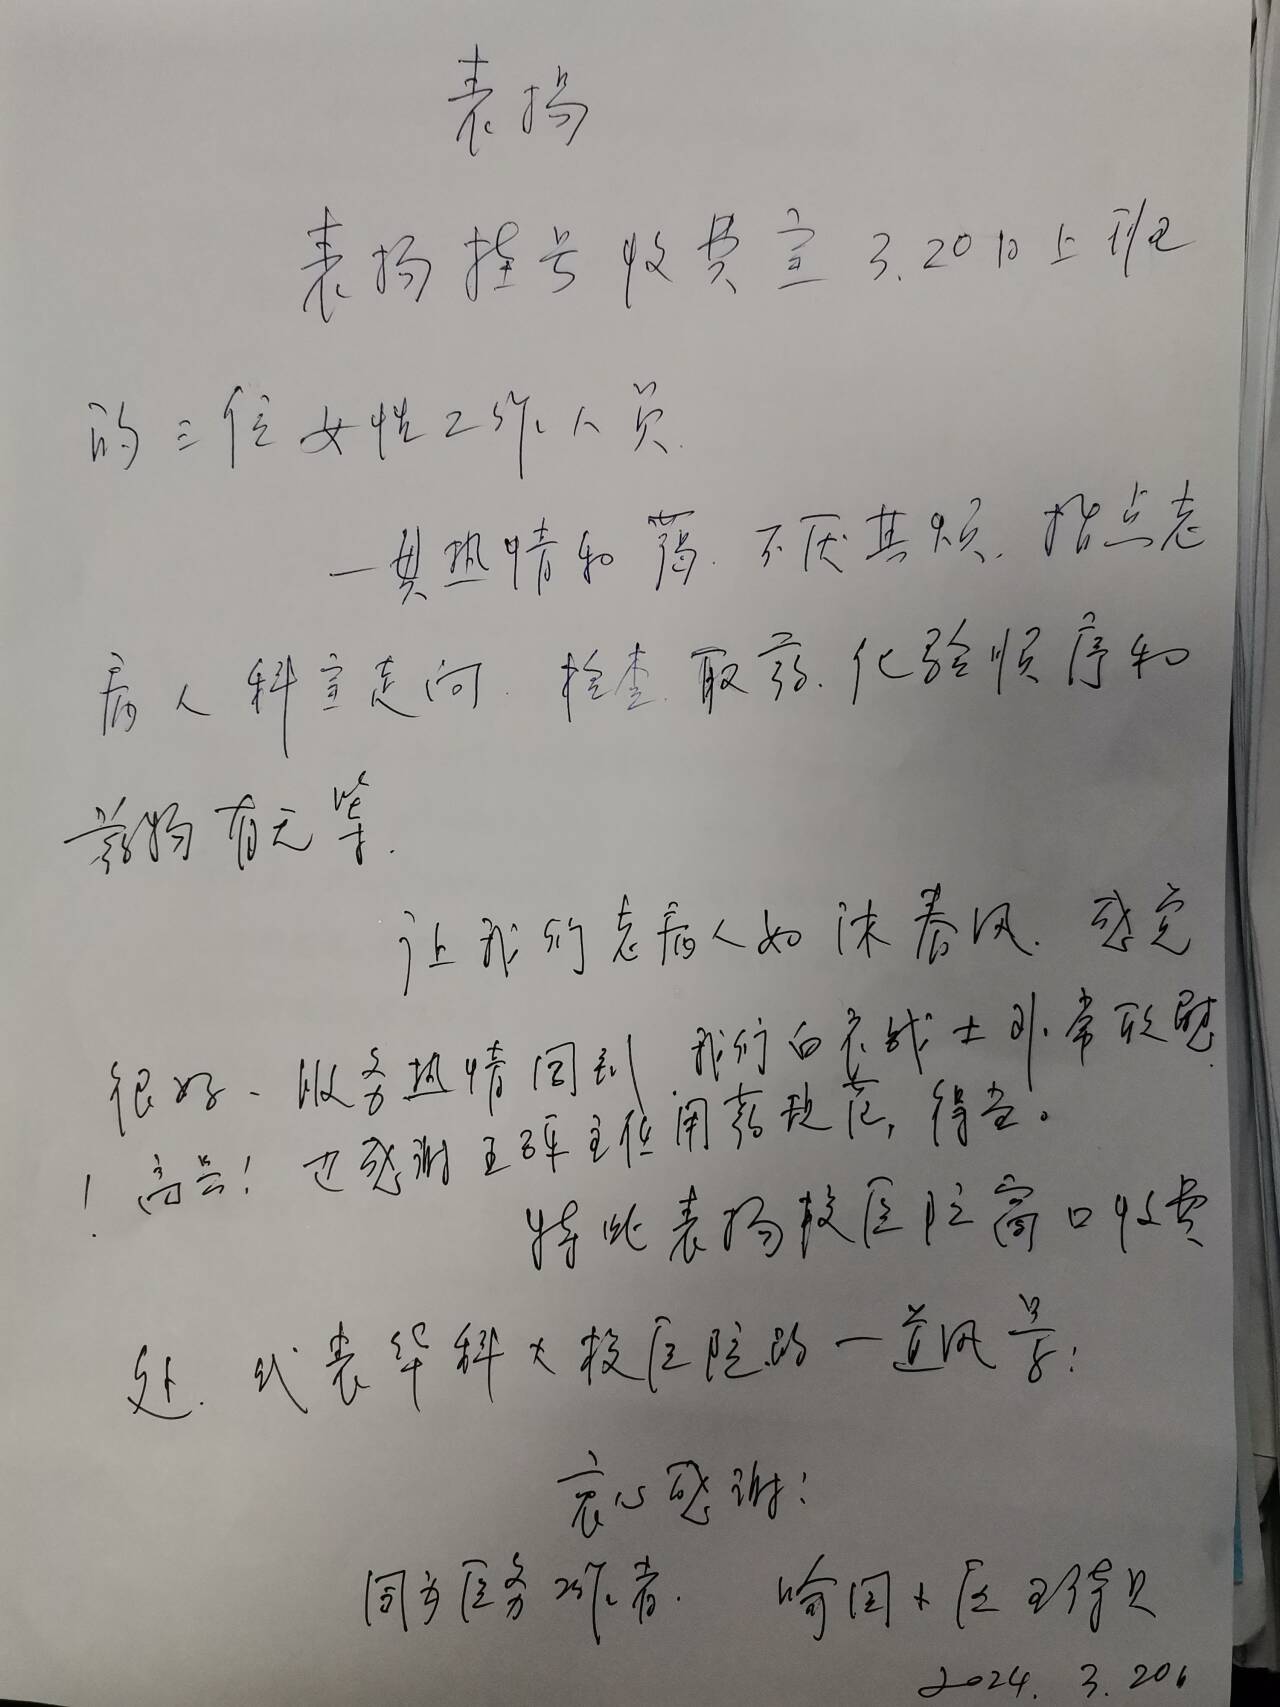 表扬
表扬挂号收费室3.20日上班
的三位女性工作人员.
一贯热情和蔼.不厌其烦.指点老
病人科室走向.检查.取药.化验顺序和
药物有无等.
让我们老病人如沐春风.感觉
很好、服务热情周到 我们白衣战士非常欣慰
!高兴!也感谢王 主任用药规范,得当。
特此表扬校医院窗口收费
处.代表华科大校医院的一道风景!
衷心感谢!
同为医务工作者. 医
2024.3.20